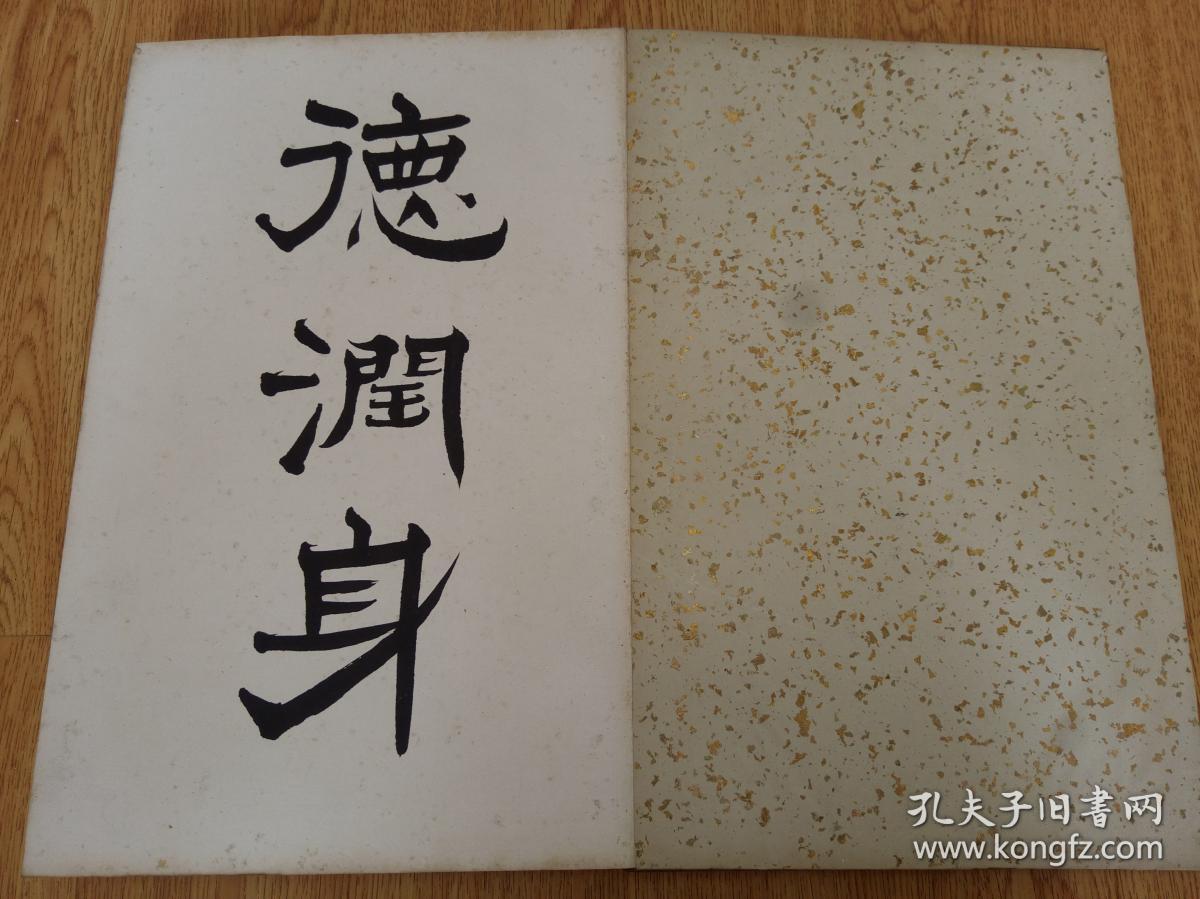 德
潤
身
孔夫子旧書网
www.kongfz.com